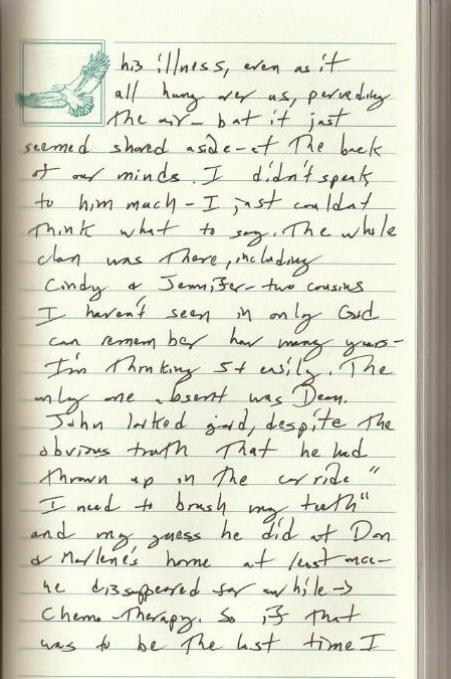 his illness, even as it
all hung over us, pervading
the air - but it just
seemed shoved aside - at the back
of our minds. I didn't speak
to him much - I just couldn't
think what to say. The whole
clan was there, including
Cindy & Jennifer - two cousins
I haven't seen in only God
can remember how many years -
I'm thinking 5+ easily. The
only one absent was Dean.
John looked good, despite the
obvious truth that he had
thrown up in the car ride "
I need to brush my teeth"
and my guess he did at Don
& Marlene's home at least once -
he disappeared for awhile →
Chemo-therapy. So if that
was to be the last time I